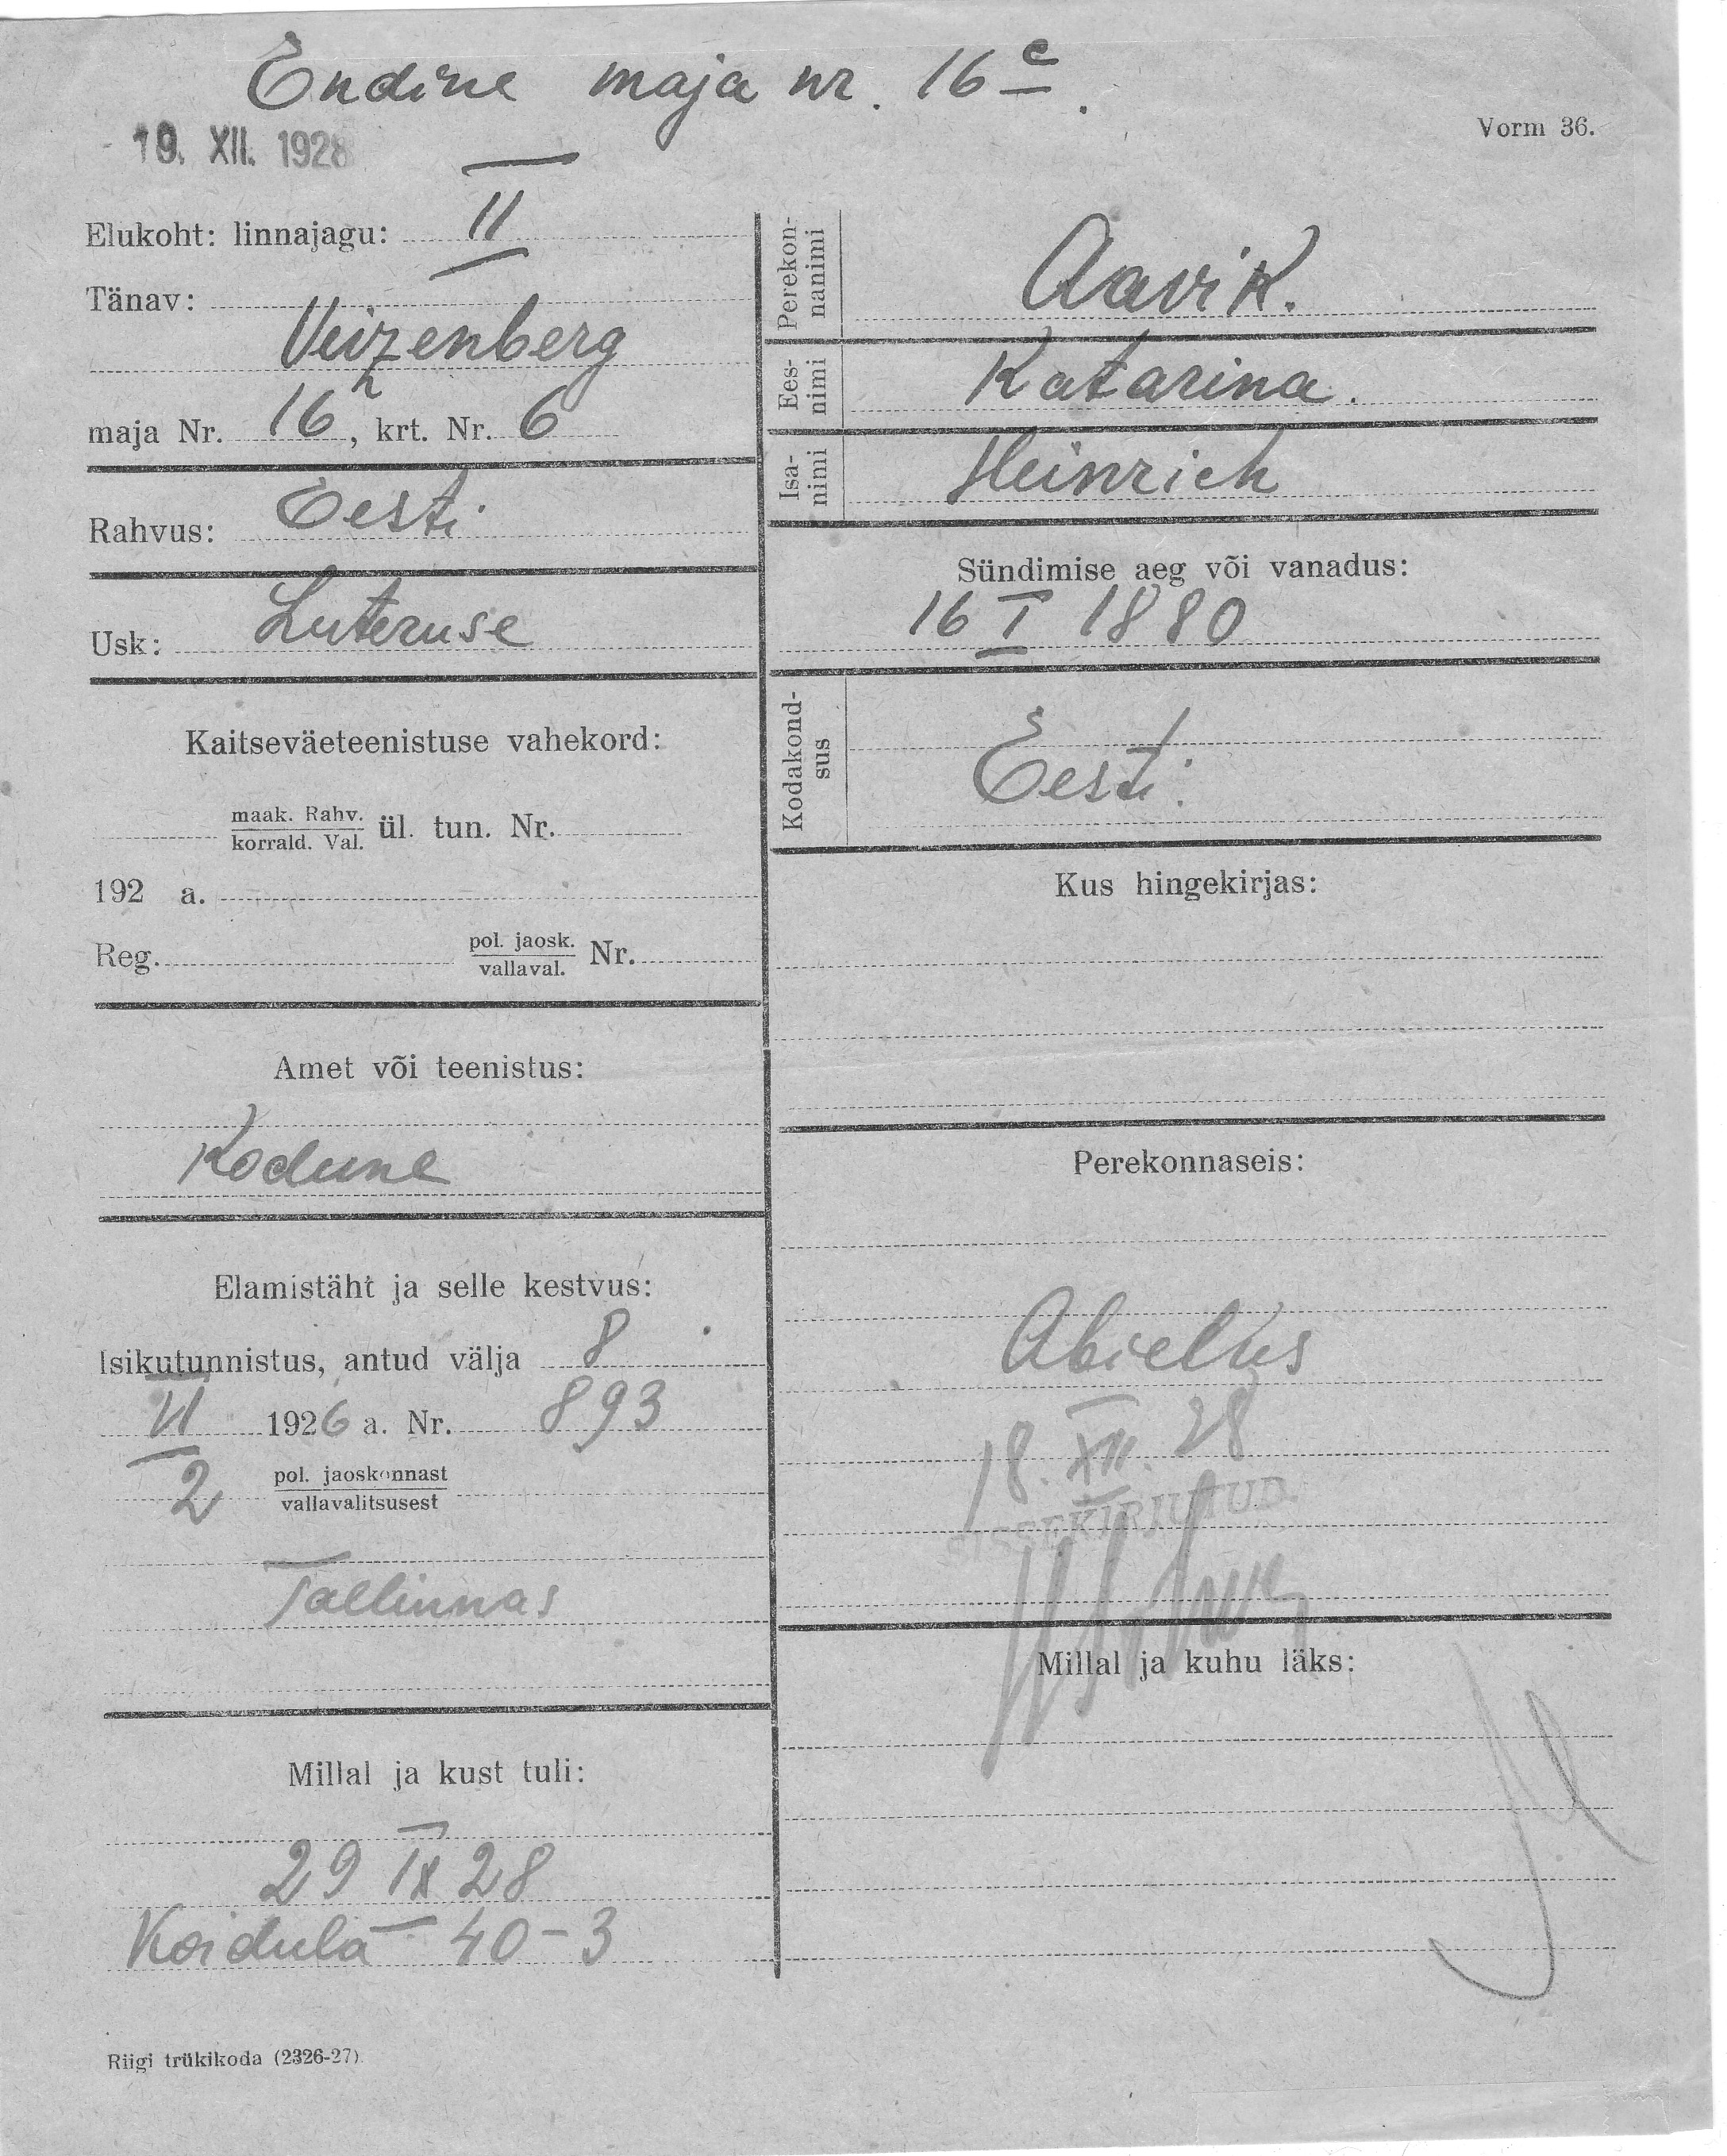 Endine maja nr. 16c.
19. XII. 1928
Vorm 36.
Elukoht: linnajagu: II
Tänav:
Veizenberg
maja Nr. 16, krt. Nr. 6
Rahvus: Eesti
Usk: Luteruse
Kaitseväeteenistuse vahekord:
maak. Rahv.
korrald. Val.
ül. tun. Nr.
192 a.
Reg.
pol. jaosk.
vallaval.
Nr.
Amet või teenistus:
Kodune
Elamistäht ja selle kestvus:
Isikutunnistus, antud välja 8
VI 1926 a. Nr. 893
2 pol. jaoskonnast
vallavalitsusest
Tallinnas
Millal ja kust tuli:
29 IX 28
Koidula 40-3
Riigi trükikoda (2326-27)
Perekon-
nanimi
Aavik.
Ees-
nimi
Katarina.
Isa-
nimi
Heinrich
Sündimise aeg või vanadus:
16 I 1880
Kodakond-
sus
Eesti
Kus hingekirjas:
Perekonnaseis:
Abielus
18. XII. 28
SISSEKIRJUTUD.
Millal ja kuhu läks: